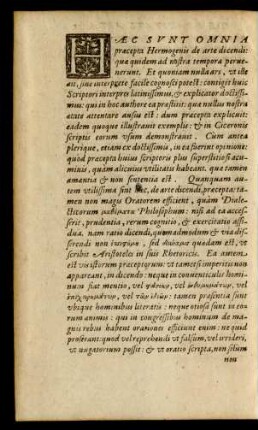 HAEC SVNT OMNIA
præcepta Hermogenis de arte dicendi:
quæ quidem ad nostra tempora perue-
nerunt. Et quoniam nulla ars, vt ille
ait, sine interprete facile cognosci potest: contigit huic
Scriptori interpres latinissimus, & explicator doctissi-
mus: qui in hoc authore ea profitit: quæ nullus nostra
ætate attentare ausus est: dum præcepta explicuit:
eadem quoque illustrant exemplis: & in Ciceronis
scriptis eorum vsum demonstrant. Cum autem
plerique, etiam ex doctissimis, in ea fuerint opinione:
quod præcepta huius scriptoris plus superstitiosæ acu-
minis, quam alicuius vtilitatis habeant. quæ tamen
amentia & non sententia est. Quanquam au-
tem vtilissima sint hæc, de arte dicendi, præcepta: ta-
men non magis Oratorem efficient, quam Diale-
cticorum Philosophum: nisi ad ea acces-
serit, prudentia, rerum cognitio, & exercitatio assi-
dua. nam ratio dicendi, quemadmodum & via dis-
serendi non sed quædam est, vt
scribit Aristoteles in suis Rhetoricis. Ea autem
est vis istorum præceptorum: vt tamen si imperitis non
appareant, in dicendo: neque in conuenticulis homi-
num fiat mentio, vel vel vel
vel tamen præsentia sunt
vbique hominibus literatis: neque otiosa sunt in eo-
rum animis: qui in congressibus hominum de ma-
gnis rebus habent orationes efficiunt enim: ne quid
proferant: quod vel reprehendi vt falsum, vel vt
vt nugatorium possit: & vt oratio scripta, non solum
non